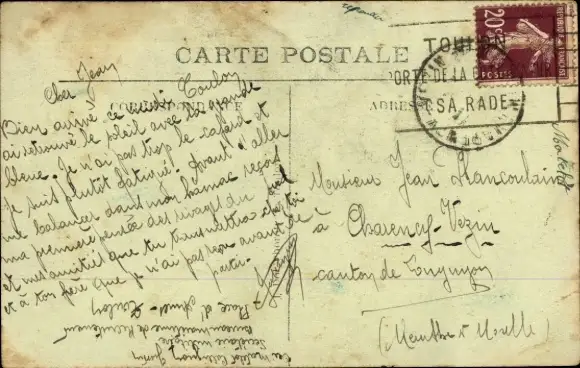 CARTE POSTALE
TOULON
PORTE DE LA
SA RADE
20c
POSTES
CORRESPONDANCE
ADRESSE
Toulon
Cher Jean
Bien arrivé ce midi
ai retrouvé le soleil avec la grande
bleue. Je n'ai pas trop le cafard et
je suis plutôt fatigué. Avant d'aller
me balancer dans mon hamac reçois
ma première pensée des rivages du
et mes amitiés que tu transmettra chez toi
et à ton père que je n'ai pas vu avant de
partir.
Monsieur Jean
à
Charency-Vezin
canton de Longuyon
(Meurthe & Moselle)
Secrétaire militaire
Bureau maritime de Recrutement
Place d'Armes - Toulon